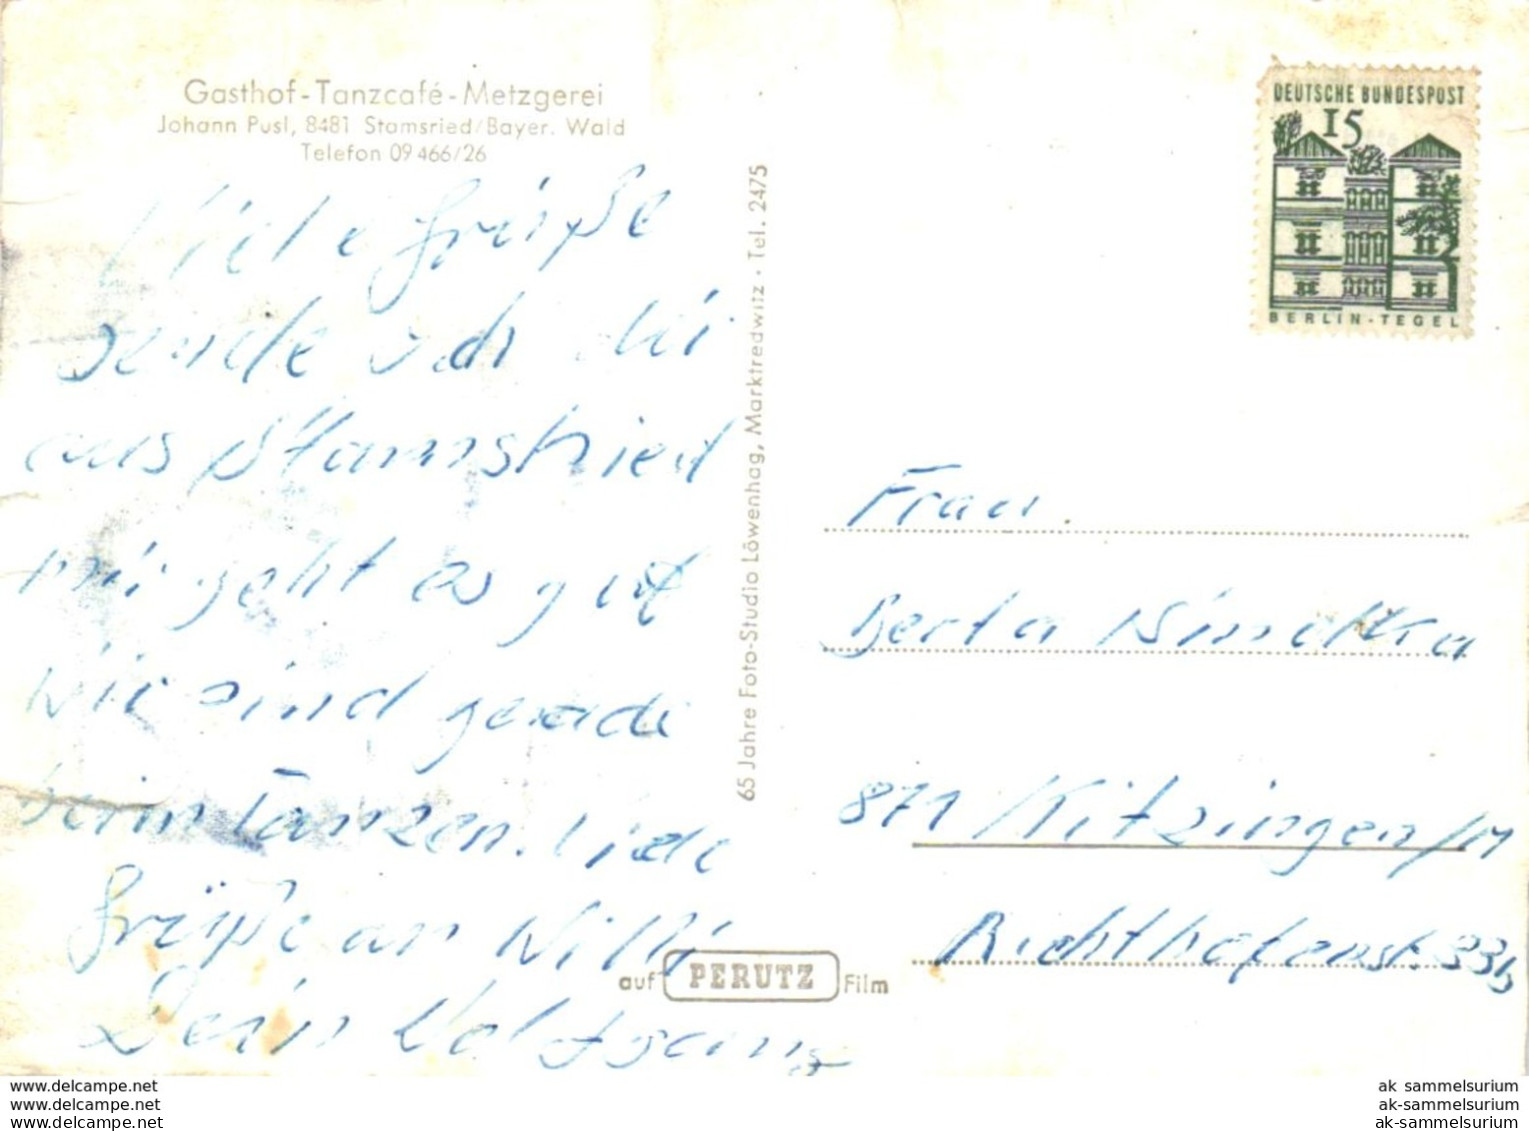 Gasthof-Tanzcafé-Metzgerei
Johann Pusl, 8481 Stamsried/Bayer. Wald
Telefon 09 466/26
Viele Grüße
sende ich dir
aus Stamsried
mir geht es gut
Wir sind gerade
beim Tanzen. Viele
Grüße an Willi
Dein Wolfgang
65 Jahre Foto-Studio Löwenhag, Marktredwitz · Tel. 2475
auf PERUTZ Film
DEUTSCHE BUNDESPOST
15
BERLIN-TEGEL
Frau
Berta
871 Kitzingen/M
Richthofenstr. 33b
www.delcampe.net
www.delcampe.net
www.delcampe.net
ak_sammelsurium
ak-sammelsurium
ak-sammelsurium